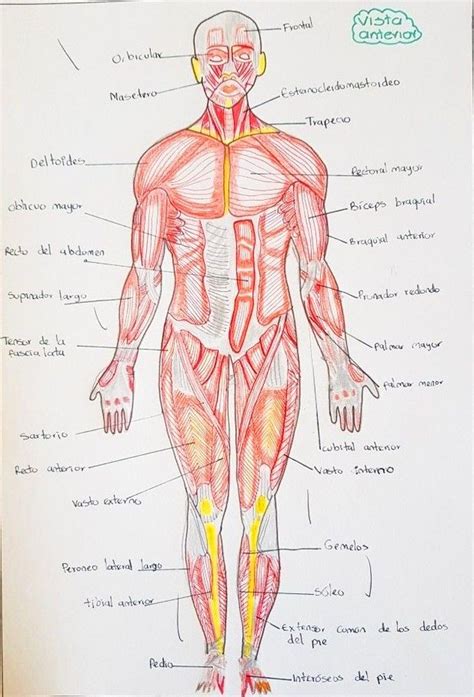 Vista
anterior
Frontal
Orbicular
Masetero
Estenocleidomastoideo
Trapecio
Deltoides
Pectoral mayor
Oblicuo mayor
Bíceps braquial
Recto del abdomen
Braquial anterior
Supinador largo
Pronador redondo
Tensor de la
fascia lata
Palmar mayor
Palmar menor
Sartorio
Cubital anterior
Recto anterior
Vasto interno
Vasto externo
Gemelos
Peroneo lateral largo
Sóleo
Tibial anterior
Extensor común de los dedos
del pie
Pedio
Interóseos del pie